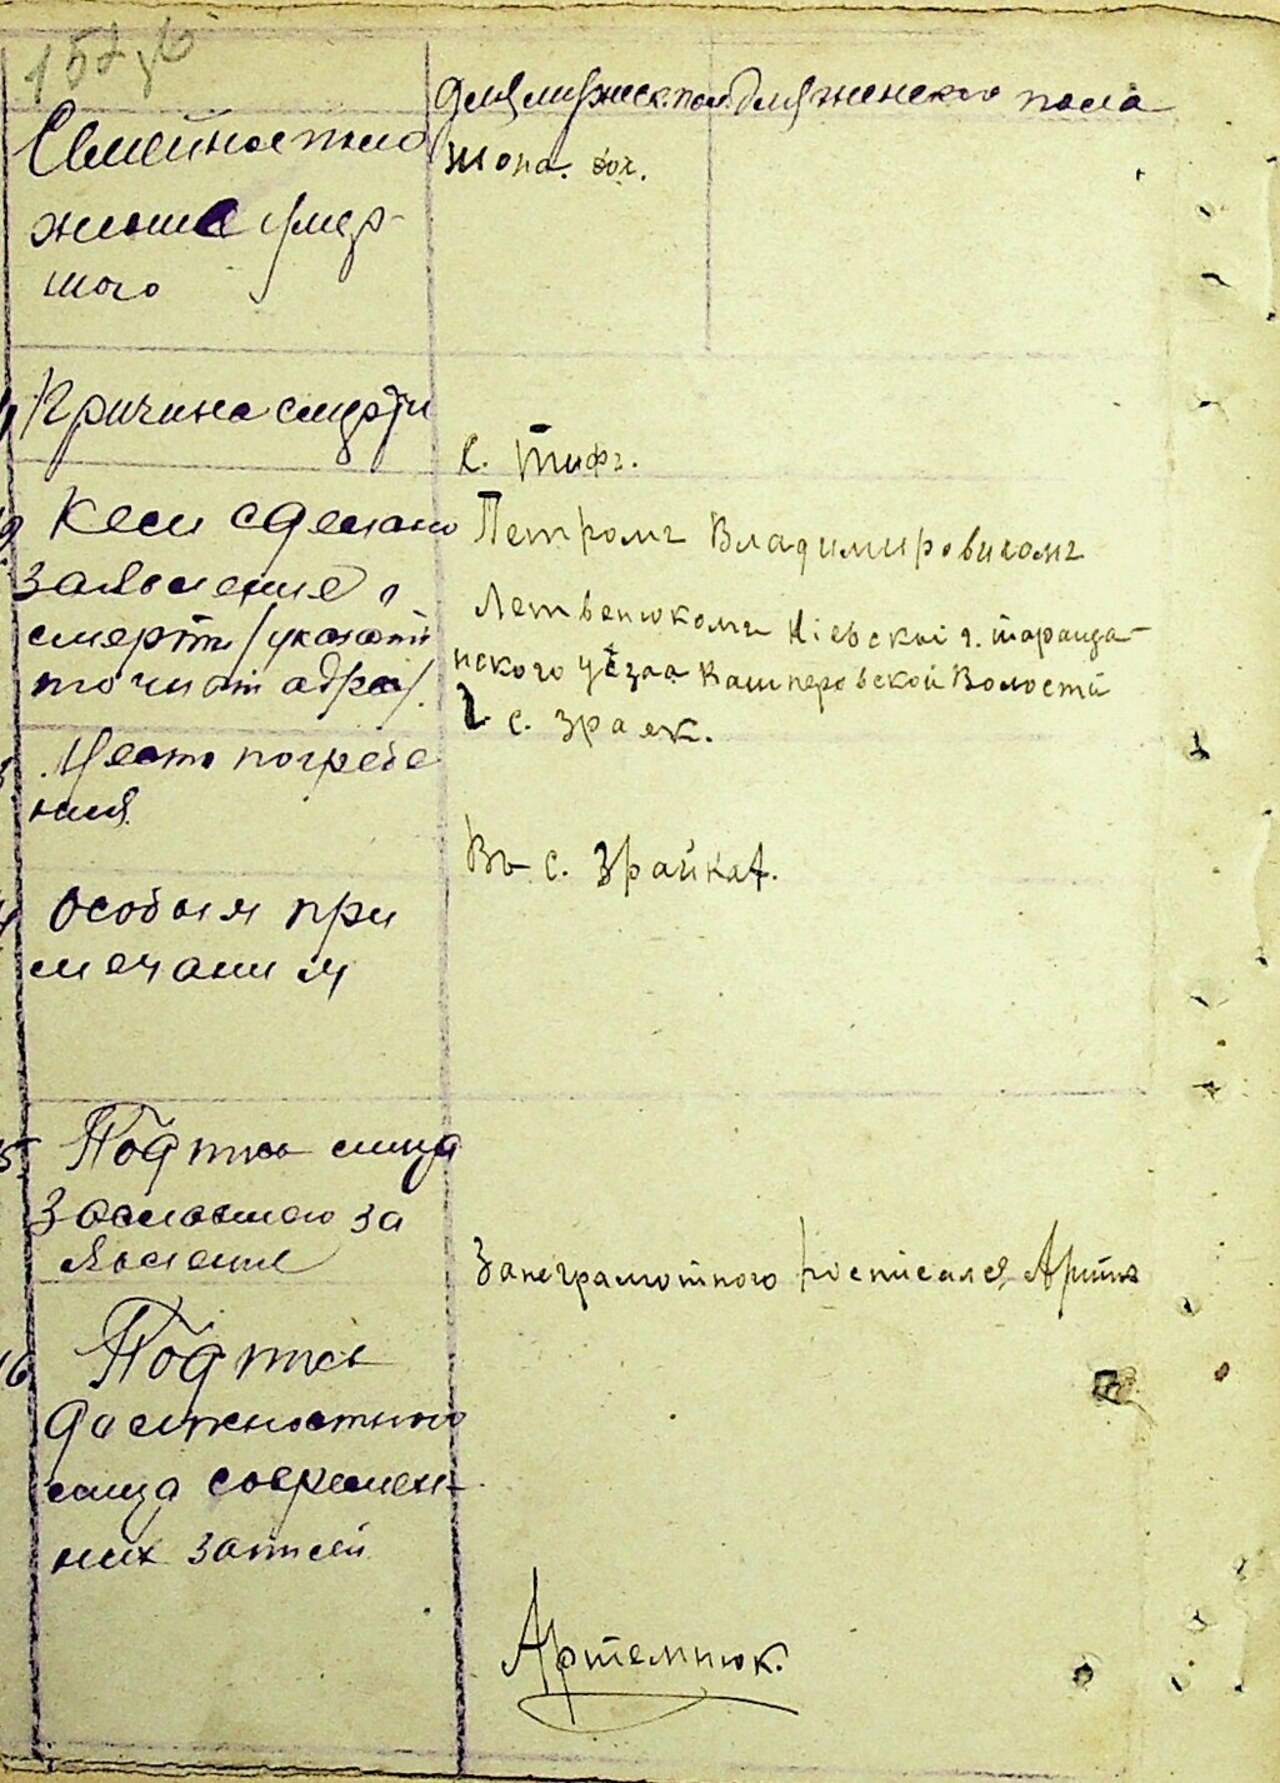 157 зв
для мужеск. пол. для женского пола
Семейное поло
жение умер-
шого
жона. хол.
Причина смерти
С. Тифъ.
Кем сделано
заявление о
смерти /указать
точный адрес/.
Петромъ Владимировичомъ
Летвенюкомъ Кіевской г. Таращан-
нского уѣзда Кашперовской Волости
с. Зраек.
Место погребе
ния
Въ с. Зрайках.
Особыя при
мечания
Подпись лица
заславшаго за
явление
За неграмотного росписался Артем
Подпись
должностного
лица современ-
них записей
Артемнюк.